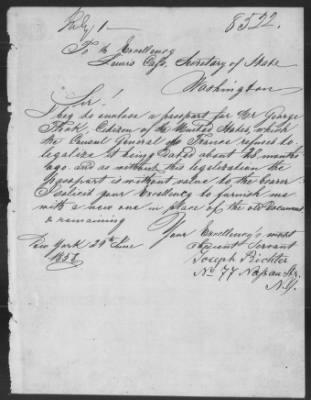 8522.
To His Excellency
Lewis Cass, Secretary of State
Washington
Sir!
I beg to enclose a passport for Mr George
Citizen of the United States, which
the Consul General of France refused to
legalize it being dated about two months
ago. And as without this legalization the
passport is without value to the
I solicit your Excellency to furnish me
with a new one in place of the old Document
& remaining
Your Excellency's most
Obedient Servant
New York 24th June
1857
Joseph Richter
No 77 Nassau Str.
N.Y.